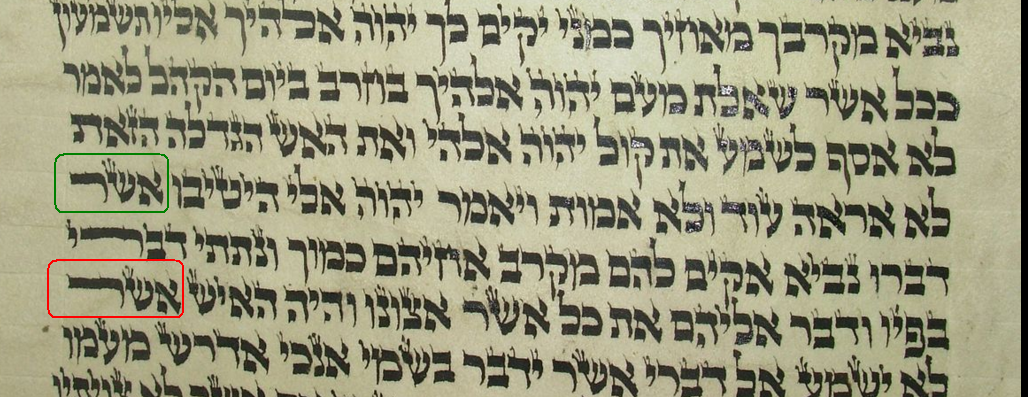 נביא מקרבך מאחיך כמני יקים לך יהוה אלהיך אליו תשמעון
ככל אשר שאלת מעם יהוה אלהיך בחרב ביום הקהל לאמר
לא אסף לשמע את קול יהוה אלהי ואת האש הגדלה הזאת
לא אראה עוד ולא אמות ויאמר יהוה אלי היטיבו אשר
דברו נביא אקים להם מקרב אחיהם כמוך ונתתי דברי
בפיו ודבר אליהם את כל אשר אצונו והיה האיש אשר
לא ישמע אל דברי אשר ידבר בשמי אנכי אדרש מעמו
אשר לא צויתיו